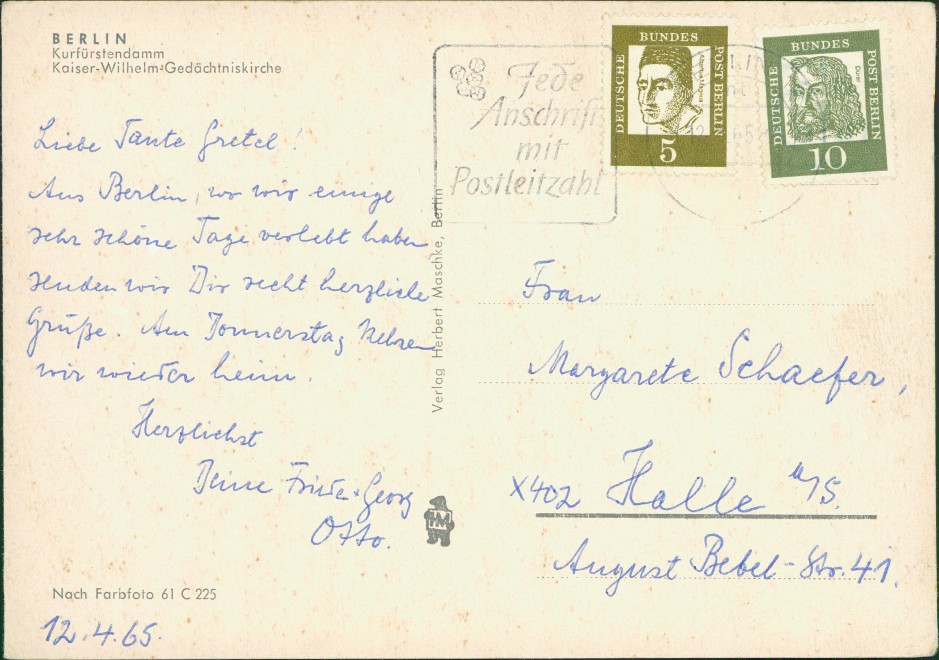 BERLIN
Kurfürstendamm
Kaiser-Wilhelm-Gedächtniskirche
Liebe Tante Gretel!
Aus Berlin, wo wir einige
sehr schöne Tage verlebt haben
senden wir Dir recht herzliche
Grüße. Am Donnerstag kehren
wir wieder heim.
Herzlichst
Deine Friede + Georg
Otto.
Nach Farbfoto 61 C 225
12.4.65.
Verlag Herbert Maschke, Berlin
HM
Jede
Anschrift
mit
Postleitzahl
DEUTSCHE
BUNDES
POST BERLIN
Albertus Magnus
5
DEUTSCHE
BUNDES
POST BERLIN
Dürer
10
Frau
Margarete Schaefer,
X402 Halle a/S.
August Bebel-Str. 41.